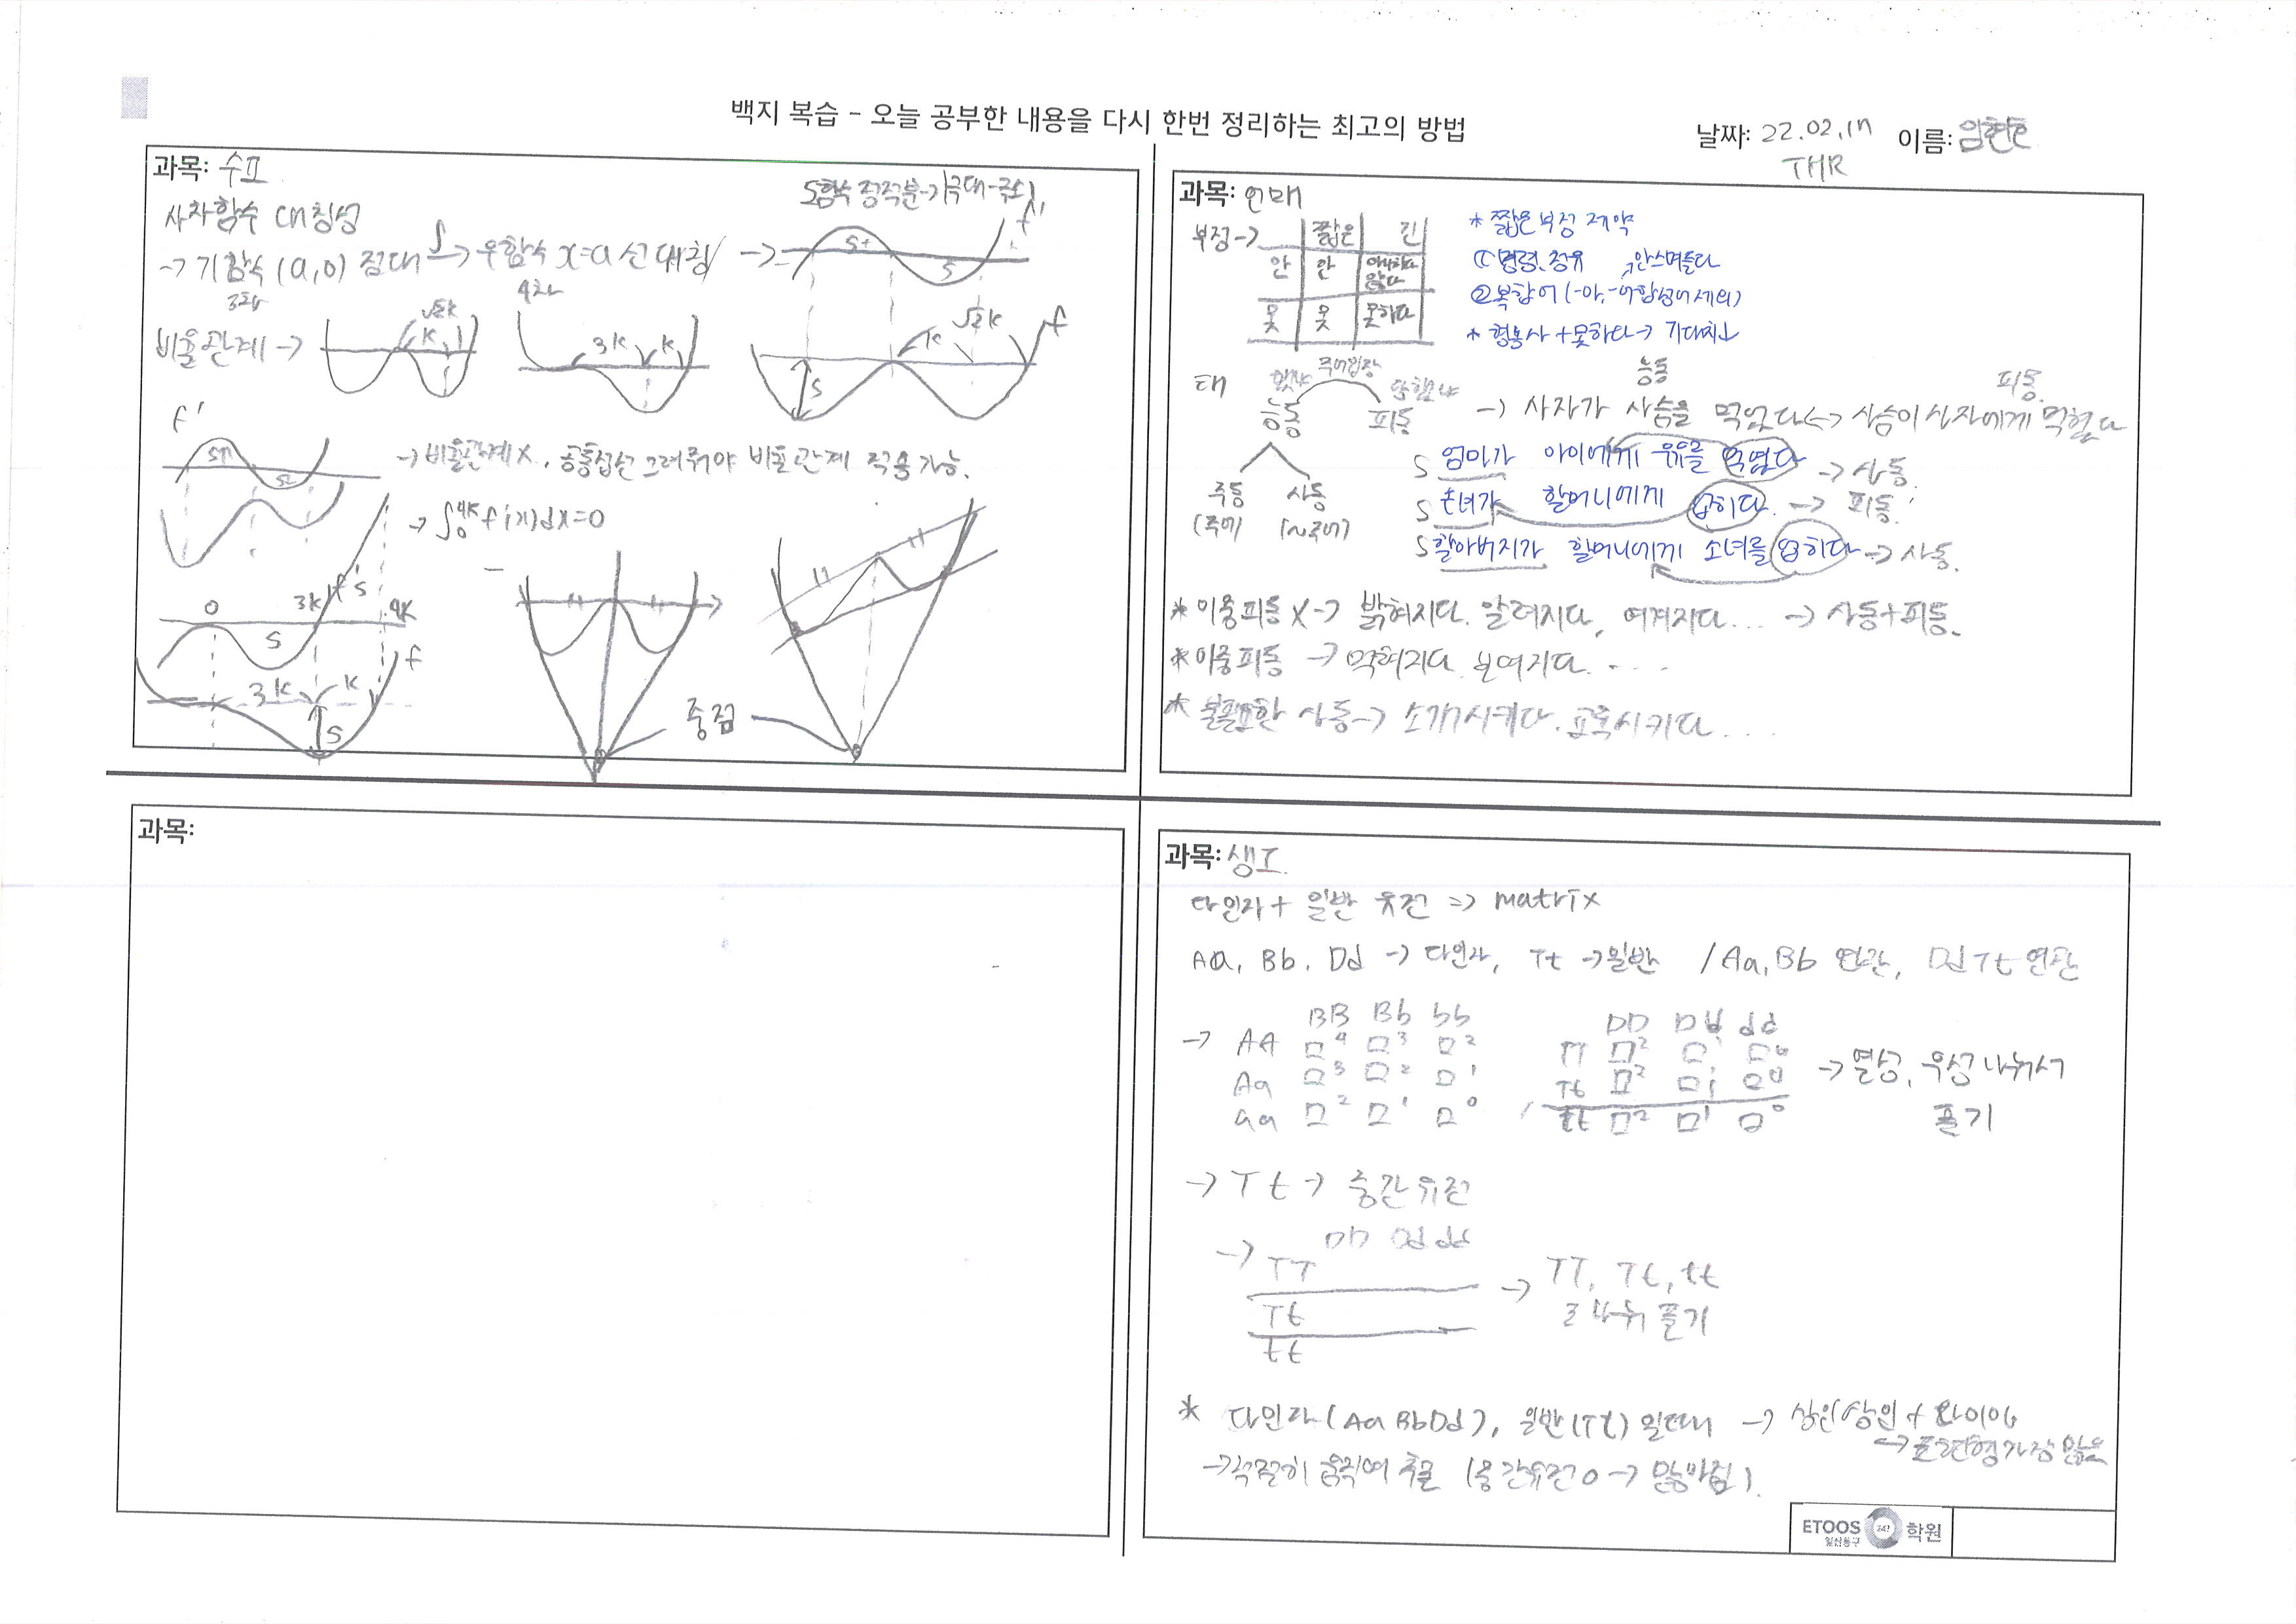 백지 복습 - 오늘 공부한 내용을 다시 한번 정리하는 최고의 방법
날짜: 22.02.17 이름: 임현호
THR
과목: 수II
사차함수 대칭성
S함수 정적분→극대-극소
→ 기함수 (a,0) 점대 ∫→ 우함수 x=a 선대칭 →
3차 4차
S+ S f'
비율관계 → √2k k 3k k
k √2k f
S
f'
→ 비율관계 X, 공통접선 그려줘야 비율관계 적용 가능.
→ ∫₀⁴ᵏ f'(x)dx=0
0 3k f' S 4k
S
3k k f
S
중점
과목: 언매
부정→ 짧은 긴
안 안 아니하다 않다
못 못 못하다
* 짧은 부정 제약
① 명령, 청유 안스며들다
② 복합어 (-아, -어 합성어 제외)
* 형용사 + 못하다 → 기대치↓
태 했냐 주어입장 당했냐
능동 피동
능동 피동
→ 사자가 사슴을 먹었다 ↔ 사슴이 사자에게 먹혔다
주동 사동
(주어) (~주어)
S 엄마가 아이에게 우유를 먹였다 → 사동.
S 손녀가 할머니에게 업히다. → 피동.
S 할아버지가 할머니에게 소녀를 업히다 → 사동.
* 이중피동 X → 밝혀지다. 알려지다, 여겨지다... → 사동+피동.
* 이중피동 → 먹혀지다. 보여지다. ....
* 불필요한 사동 → 소개시키다. 교육시키다...
과목:
과목: 생I
다인자 + 일반 유전 => matrix
Aa, Bb, Dd → 다인자, Tt → 일반 / Aa, Bb 연관, Dd Tt 연관
BB Bb bb
→ AA □⁴ □³ □²
Aa □³ □² □¹
aa □² □¹ □⁰
DD Dd dd
TT □² □¹ □⁰
Tt □² □¹ □⁰
tt □² □¹ □⁰
→ 열성, 우성 나눠서
풀기
→ Tt → 중간유전
DD Dd dd
→ TT
Tt
tt
→ TT, Tt, tt
로 나눠 풀기
* 다인자 (AaBbDd), 일반(Tt) 일때 → 상인/상인 + 다이아
→ 표현형 가장 많음
→ 적절히 움직여 추론 (중간유전 0 → 많아짐).
ETOOS 247 학원
일산동구